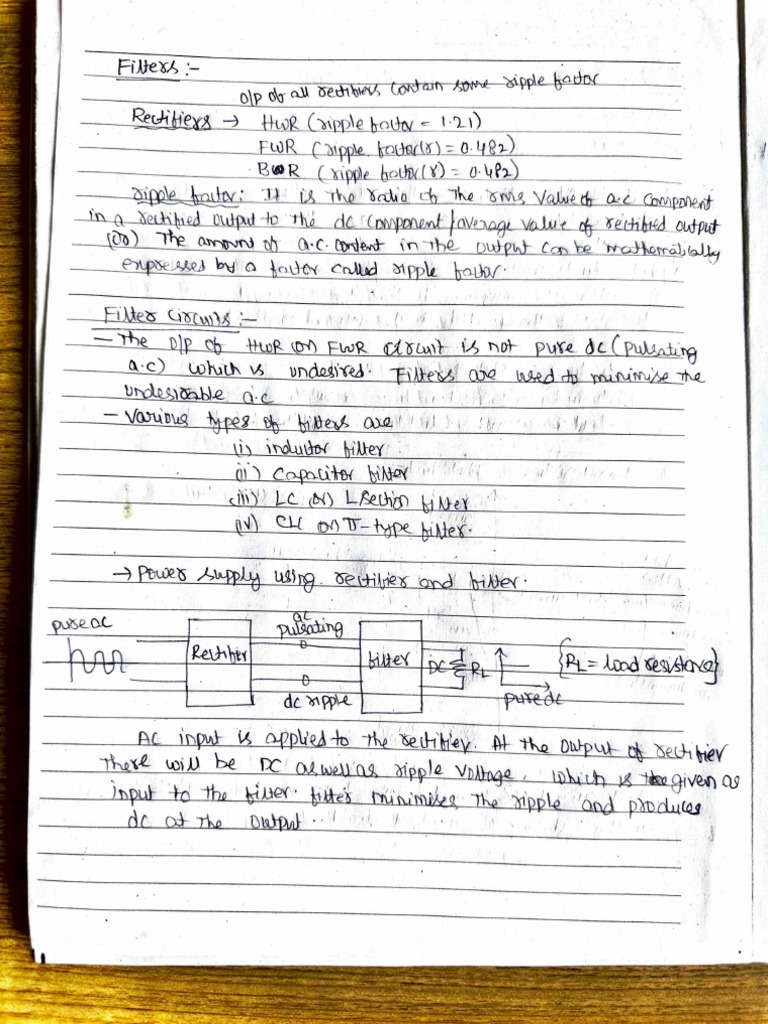 Filters :-
O/P of all rectifiers contain some ripple factor
Rectifiers → HWR (ripple factor = 1.21)
FWR (ripple factor(r) = 0.482)
BR (ripple factor(r) = 0.482)
ripple factor: It is the ratio of the rms value of a.c component
in a rectified output to the dc component/average value of rectified output
(or) The amount of a.c. content in the output can be mathematically
expressed by a factor called ripple factor.
Filter circuits :-
- The O/P of HWR (or) FWR circuit is not pure dc (pulsating
a.c) which is undesired. Filters are used to minimise the
undesirable a.c
- Various types of filters are
(i) inductor filter
(ii) Capacitor filter
(iii) LC (or) L section filter
(iv) CLC (or) π-type filter.
→ Power supply using rectifier and filter.
pure ac
Rectifier
ac
pulsating
dc ripple
filter
DC
RL
pure dc
{RL = load resistance}
AC input is applied to the rectifier. At the output of rectifier
there will be DC as well as ripple voltage, which is given as
input to the filter. filter minimises the ripple and produces
dc at the output.